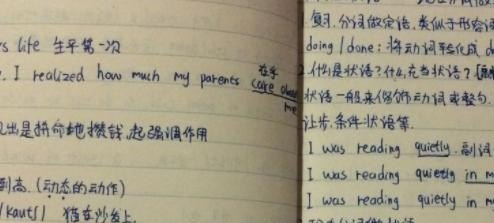 's life 生平第一次
I realized how much my parents care about
在乎
me
出是拼命地攒钱,起强调作用
到高.(动态的动作)
/kautʃ/ 猫在沙发上.
复习.分词做定语,类似于形容词
doing / done: 将动词转化成
2.什么是状语?什么充当状语?
状语一般来修饰动词或整句.
让步.条件状语等.
I was reading quietly. 副词
I was reading quietly in m
I was reading quietly in m